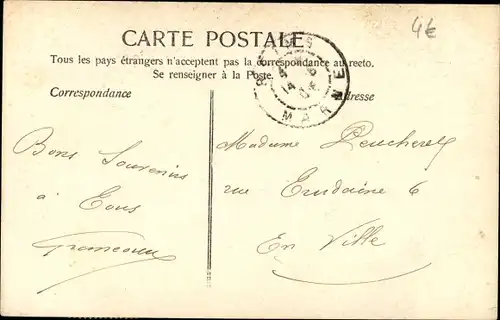 4€
CARTE POSTALE
Tous les pays étrangers n'acceptent pas la correspondance au recto.
Se renseigner à la Poste.
Correspondance
dresse
MARNE
Bons Souvenirs
à
Tous
Madame
rue 6
En Ville